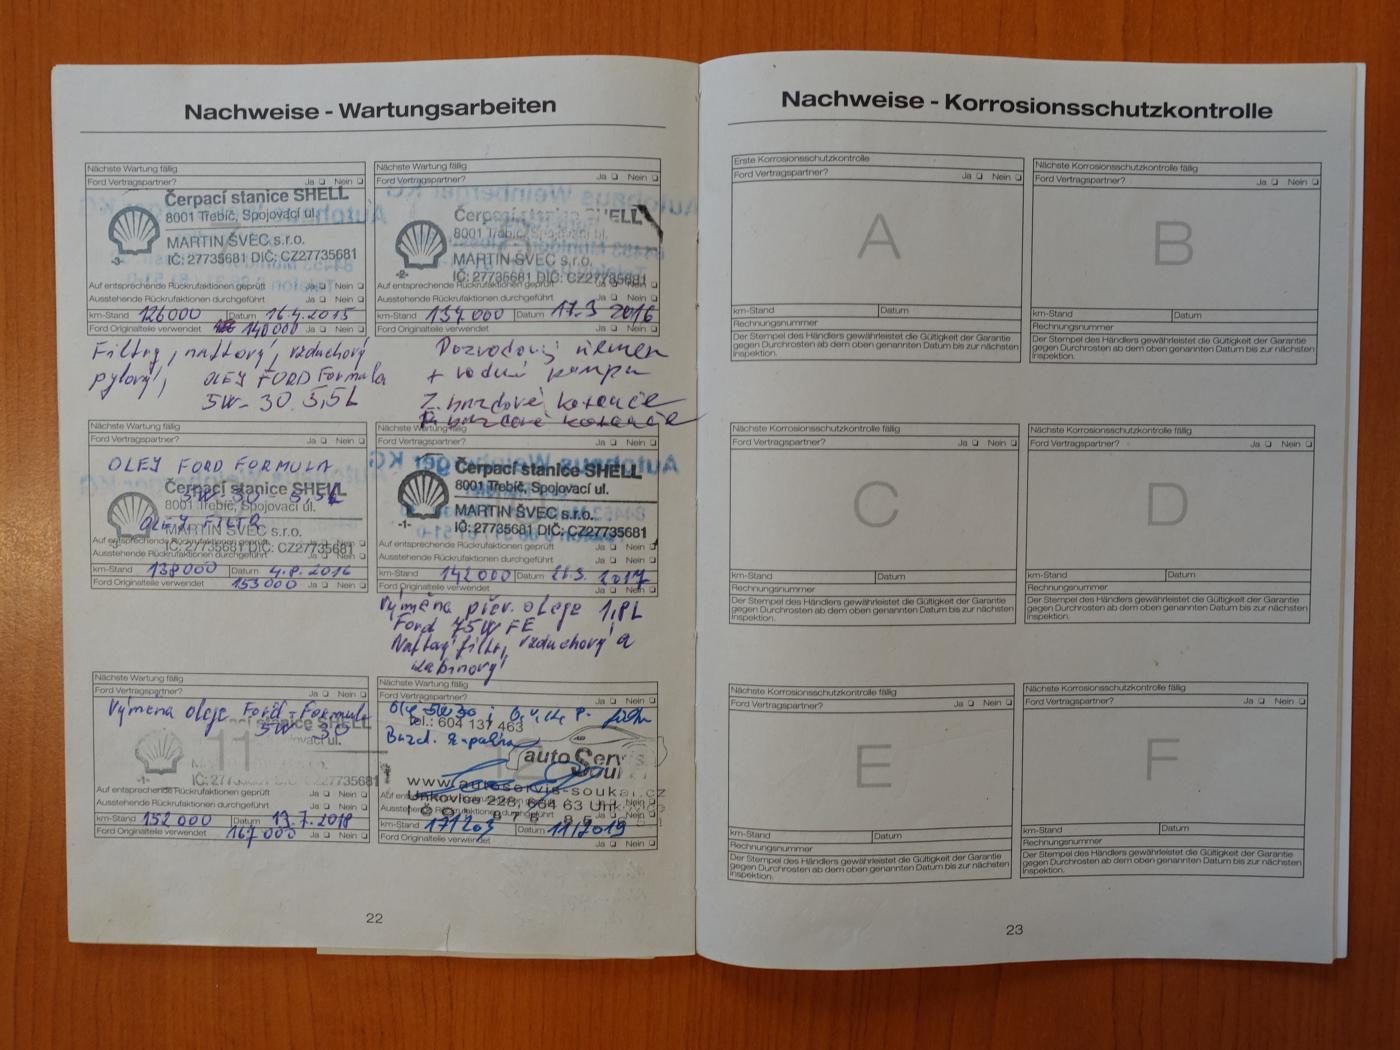 Nachweise - Wartungsarbeiten
Nächste Wartung fällig
Ford Vertragspartner? Ja Nein
Čerpací stanice SHELL
8001 Třebíč, Spojovací ul.
MARTIN ŠVEC s.r.o.
IČ: 27735681 DIČ: CZ27735681
-3-
Auf entsprechende Rückrufaktionen geprüft
Ausstehende Rückrufaktionen durchgeführt Ja Nein
km-Stand 126000 Datum 16.4.2015
Ford Originalteile verwendet 140000 Ja Nein
Filtry, naftový, vzduchový
pylový, OLEJ FORD Formula
5W-30 5,5L
Nächste Wartung fällig
Ford Vertragspartner? Ja Nein
Čerpací stanice SHELL
8001 Třebíč, Spojovací ul.
MARTIN ŠVEC s.r.o.
IČ: 27735681 DIČ: CZ27735681
-2-
Auf entsprechende Rückrufaktionen geprüft
Ausstehende Rückrufaktionen durchgeführt Ja Nein
km-Stand 134000 Datum 17.3 2016
Ford Originalteile verwendet Ja Nein
Rozvodový řemen
+ vodní pumpa
Z. brzdové kotouče
P. brzdové kotouče
Nächste Wartung fällig
Ford Vertragspartner? Ja Nein
OLEJ FORD FORMULA
5W 30 5,5L
OLEJ FILTR
Čerpací stanice SHELL
8001 Třebíč, Spojovací ul.
MARTIN ŠVEC s.r.o.
IČ: 27735681 DIČ: CZ27735681
-3-
Auf entsprechende Rückrufaktionen geprüft
Ausstehende Rückrufaktionen durchgeführt Ja Nein
km-Stand 138000 Datum 4.8.2016
Ford Originalteile verwendet 153000 Ja Nein
Nächste Wartung fällig
Ford Vertragspartner? Ja Nein
Čerpací stanice SHELL
8001 Třebíč, Spojovací ul.
MARTIN ŠVEC s.r.o.
IČ: 27735681 DIČ: CZ27735681
-1-
Auf entsprechende Rückrufaktionen geprüft
Ausstehende Rückrufaktionen durchgeführt Ja Nein
km-Stand 142000 Datum 2017
Ford Originalteile verwendet Ja Nein
Výměna přev. oleje 1,8L
Ford 75W FE
Naftový filtr, vzduchový a
kabinový
Nächste Wartung fällig
Ford Vertragspartner? Ja Nein
Výměna oleje Ford-Formula
5W 30
stanice SHELL
IČ: 27735681 DIČ: CZ27735681
-1-
11
Auf entsprechende Rückrufaktionen geprüft
Ausstehende Rückrufaktionen durchgeführt Ja Nein
km-Stand 152000 Datum 13.7.2018
Ford Originalteile verwendet 167000 Ja Nein
Nächste Wartung fällig
Ford Vertragspartner? Ja Nein
5w30
tel.: 604 137 463
Brzd.
auto Servis
12
www.autoservis-soukal.cz
Unkovice 228, 664 63
km-Stand 171203 Datum 11/2019
Ford Originalteile verwendet Ja Nein
22
Nachweise - Korrosionsschutzkontrolle
Erste Korrosionsschutzkontrolle
Ford Vertragspartner? Ja Nein
A
km-Stand Datum
Rechnungsnummer
Der Stempel des Händlers gewährleistet die Gültigkeit der Garantie
gegen Durchrosten ab dem oben genannten Datum bis zur nächsten
Inspektion.
Nächste Korrosionsschutzkontrolle fällig
Ford Vertragspartner? Ja Nein
B
km-Stand Datum
Rechnungsnummer
Der Stempel des Händlers gewährleistet die Gültigkeit der Garantie
gegen Durchrosten ab dem oben genannten Datum bis zur nächsten
Inspektion.
Nächste Korrosionsschutzkontrolle fällig
Ford Vertragspartner? Ja Nein
C
km-Stand Datum
Rechnungsnummer
Der Stempel des Händlers gewährleistet die Gültigkeit der Garantie
gegen Durchrosten ab dem oben genannten Datum bis zur nächsten
Inspektion.
Nächste Korrosionsschutzkontrolle fällig
Ford Vertragspartner? Ja Nein
D
km-Stand Datum
Rechnungsnummer
Der Stempel des Händlers gewährleistet die Gültigkeit der Garantie
gegen Durchrosten ab dem oben genannten Datum bis zur nächsten
Inspektion.
Nächste Korrosionsschutzkontrolle fällig
Ford Vertragspartner? Ja Nein
E
km-Stand Datum
Rechnungsnummer
Der Stempel des Händlers gewährleistet die Gültigkeit der Garantie
gegen Durchrosten ab dem oben genannten Datum bis zur nächsten
Inspektion.
Nächste Korrosionsschutzkontrolle fällig
Ford Vertragspartner? Ja Nein
F
km-Stand Datum
Rechnungsnummer
Der Stempel des Händlers gewährleistet die Gültigkeit der Garantie
gegen Durchrosten ab dem oben genannten Datum bis zur nächsten
Inspektion.
23